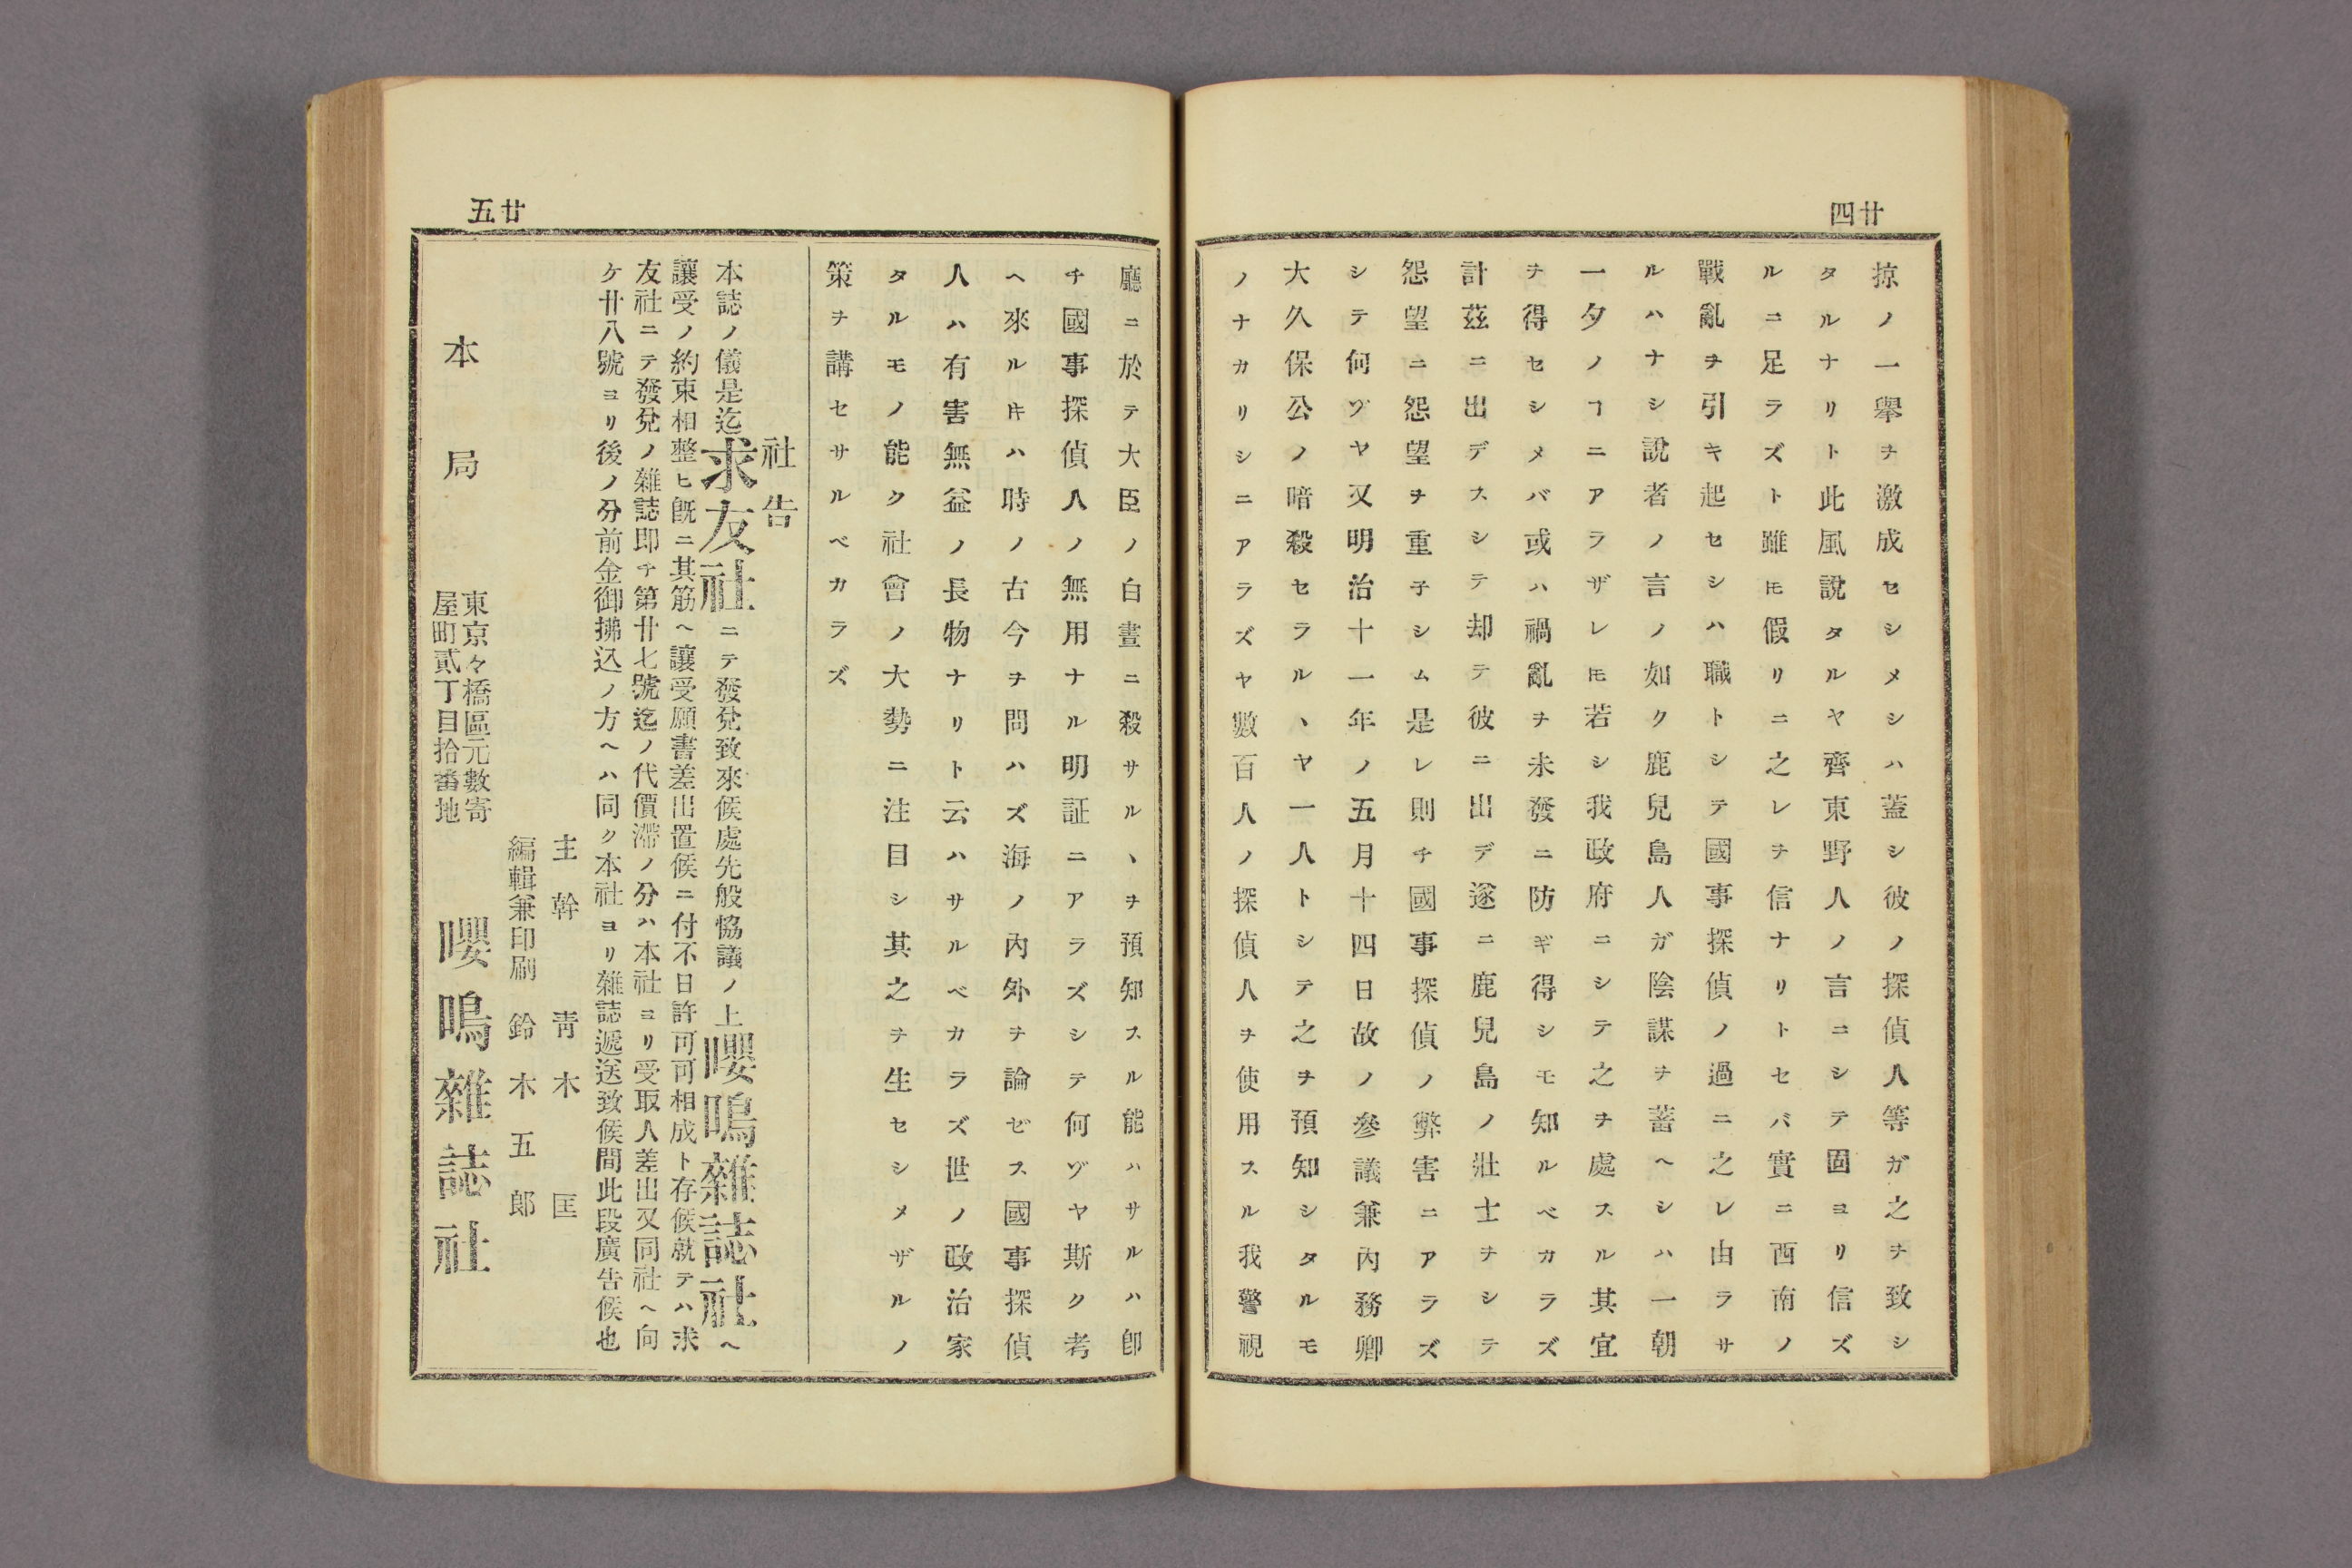 廿四
掠ノ一擧ヲ激成セシメシハ蓋シ彼ノ探偵人等ガ之ヲ致シ
タルナリト此風說タルヤ齊東野人ノ言ニシテ固ヨリ信ズ
ルニ足ラズト雖𪜈假リニ之レヲ信ナリトセバ實ニ西南ノ
戰亂ヲ引キ起セシハ職トシテ國事探偵ノ過ニ之レ由ラサ
ルハナシ說者ノ言ノ如ク鹿兒島人ガ陰謀ヲ蓄ヘシハ一朝
一夕ノヿニアラザレ𪜈若シ我政府ニシテ之ヲ處スル其宜
ヲ得セシメバ或ハ禍亂ヲ未發ニ防ギ得シモ知ルベカラズ
計茲ニ出デスシテ却テ彼ニ出デ遂ニ鹿兒島ノ壯士ヲシテ
怨望ニ怨望ヲ重子シム是レ則チ國事探偵ノ弊害ニアラズ
シテ何ゾヤ又明治十一年ノ五月十四日故ノ參議兼內務卿
大久保公ノ暗殺セラルヽヤ一人トシテ之ヲ預知シタルモ
ノナカリシニアラズヤ數百人ノ探偵人ヲ使用スル我警視
廿五
廳ニ於テ大臣ノ白晝ニ殺サルヽヲ預知スル能ハサルハ卽
チ國事探偵人ノ無用ナル明証ニアラズシテ何ゾヤ斯ク考
ヘ來ル𪜈ハ時ノ古今ヲ問ハズ海ノ內外ヲ論ゼス國事探偵
人ハ有害無益ノ長物ナリト云ハサルベカラズ世ノ政治家
タルモノ能ク社會ノ大勢ニ注目シ其之ヲ生セシメザルノ
策ヲ講セサルベカラズ
社告
本誌ノ儀是迄求友社ニテ發兌致來候處先般恊議ノ上嚶鳴雜誌社ヘ
讓受ノ約束相整ヒ旣ニ其筋ヘ讓受願書差出置候ニ付不日許可可相成ト存候就テハ求
友社ニテ發兌ノ雜誌卽チ第廿七號迄ノ代價滯ノ分ハ本社ヨリ受取人差出又同社ヘ向
ケ廿八號ヨリ後ノ分前金御拂込ノ方ヘハ同ク本社ヨリ雜誌遞送致候間此段廣告候也
主幹 靑木匡
編輯兼印刷 鈴木五郎
本局 東京々橋區元數寄
屋町貳丁目拾番地 嚶鳴雜誌社